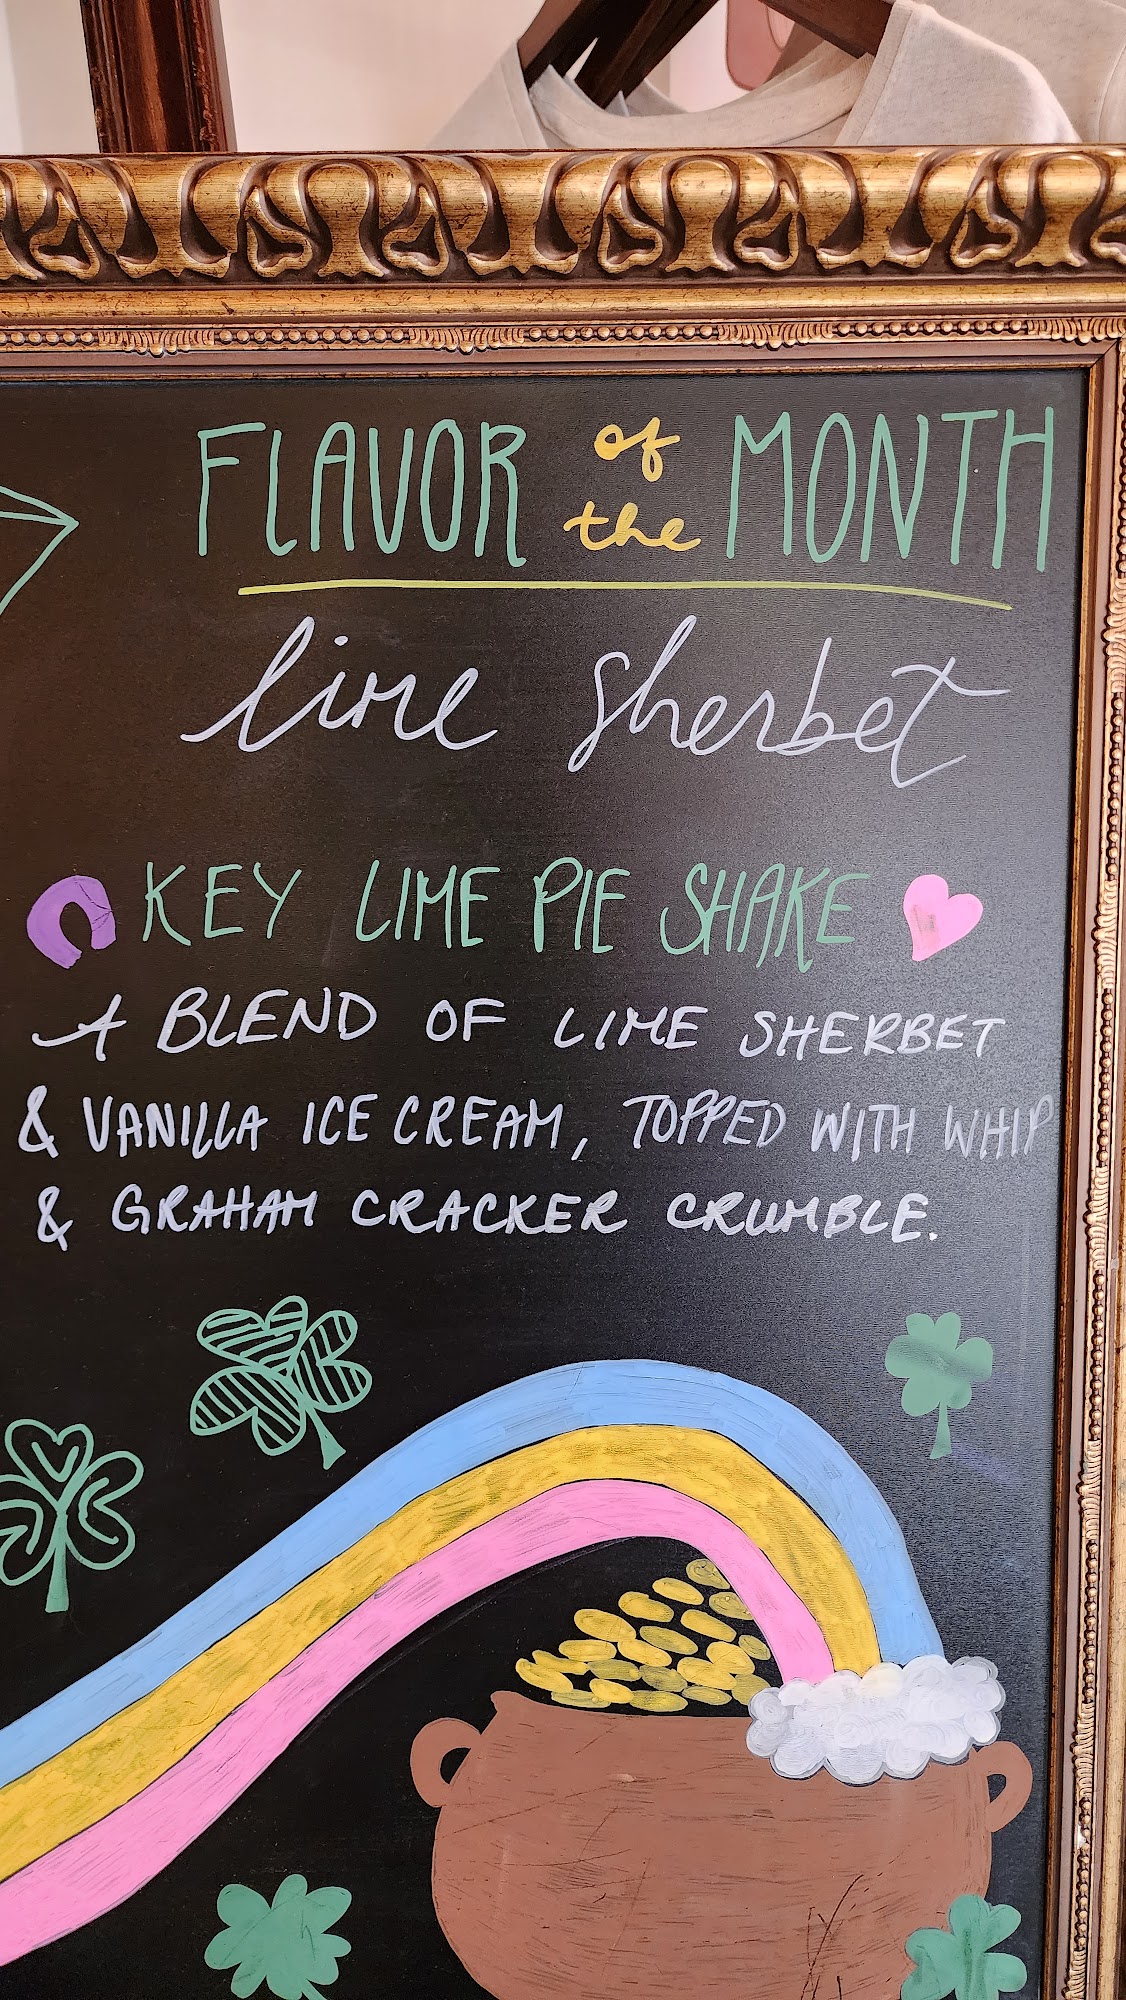 FLAVOR of the MONTH
lime sherbet
KEY LIME PIE SHAKE
A BLEND OF LIME SHERBET
& VANILLA ICE CREAM, TOPPED WITH WHIP
& GRAHAM CRACKER CRUMBLE.